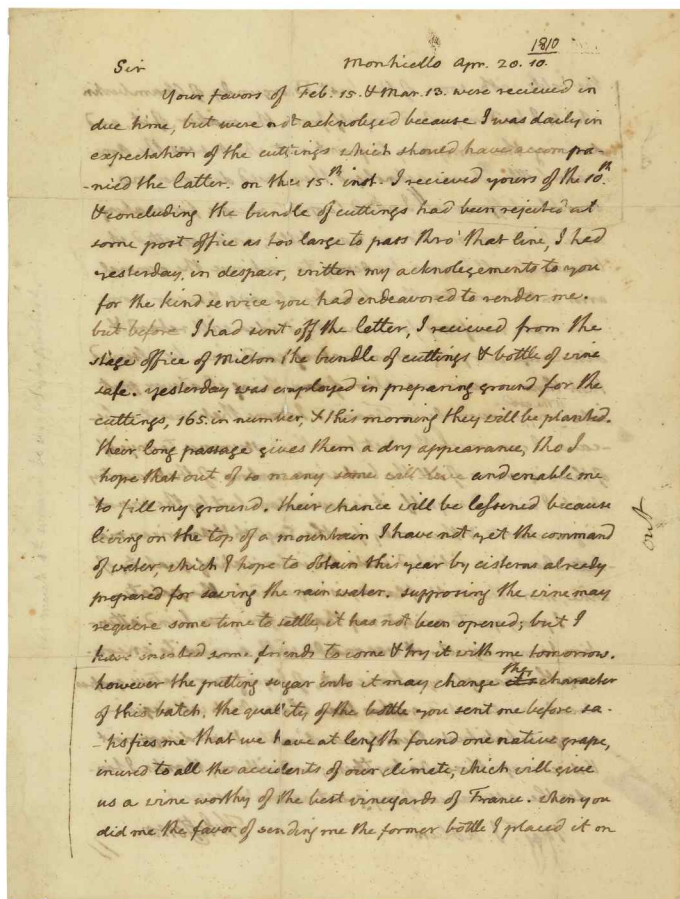 1810
Sir Monticello Apr. 20. 10.
Your favors of Feb. 15. & Mar. 13. were recieved in
due time, but were not acknoleged because I was daily in
expectation of the cuttings which should have accompa-
-nied the latter. on the 15th inst. I recieved yours of the 10th
& concluding the bundle of cuttings had been rejected at
some post office as too large to pass thro' that line, I had
yesterday, in despair, written my acknolegements to you
for the kind service you had endeavored to render me.
but before I had sent off the letter, I recieved from the
stage office of Milton the bundle of cuttings & bottle of wine
safe. yesterday was employed in preparing ground for the
cuttings, 165. in number, & this morning they will be planted.
their long passage gives them a dry appearance, tho I
hope that out of so many some will live and enable me
to fill my ground. their chance will be lessened because
living on the top of a mountain I have not yet the command
of water, which I hope to obtain this year by cisterns already
prepared for saving the rain water. supposing the wine may
require some time to settle, it has not been opened; but I
have invited some friends to come & try it with me tomorrow.
however the putting sugar into it may change the character
of this batch, the quality of the bottle you sent me before sa-
-tisfies me that we have at length found one native grape,
inured to all the accidents of our climate, which will give
us a wine worthy of the best vineyards of France. when you
did me the favor of sending me the former bottle I placed it on
out